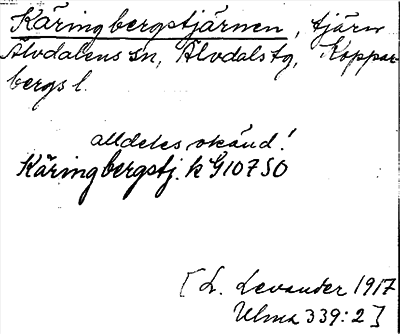 Käringbergstjärnen, tjärn
Älvdalens sn, Älvdals tg, Koppar-
bergs l.
alldeles okänd!
Käringbergstj. k G107 SO
[L. Levander 1917
Ulma 339:2]